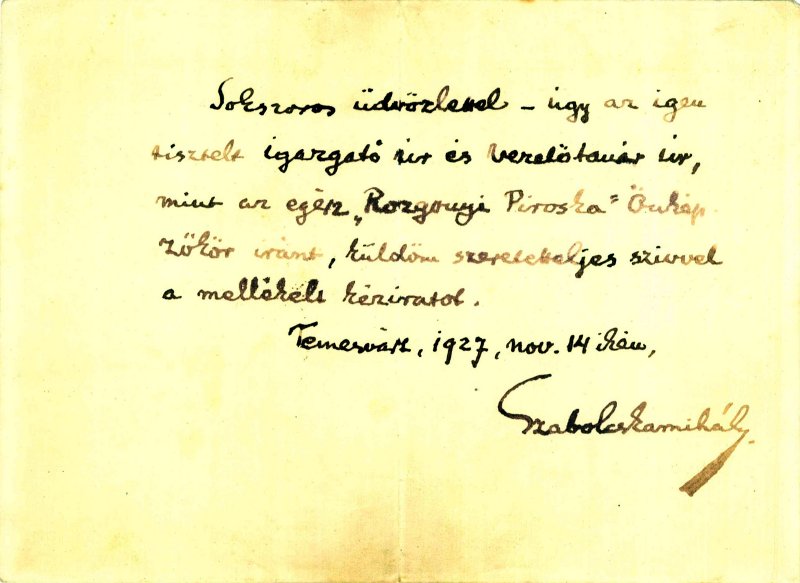 Sokszoros üdvözlettel – úgy az igen
tisztelt igazgató úr és vezetőtanár úr,
mint az egész „Rozgonyi Piroska" Önkép-
zőkör iránt, küldöm szeretetteljes szivvel
a mellékelt kéziratot.
Temesvárt, 1927, nov. 14 ikén,
Szabolcskamihály